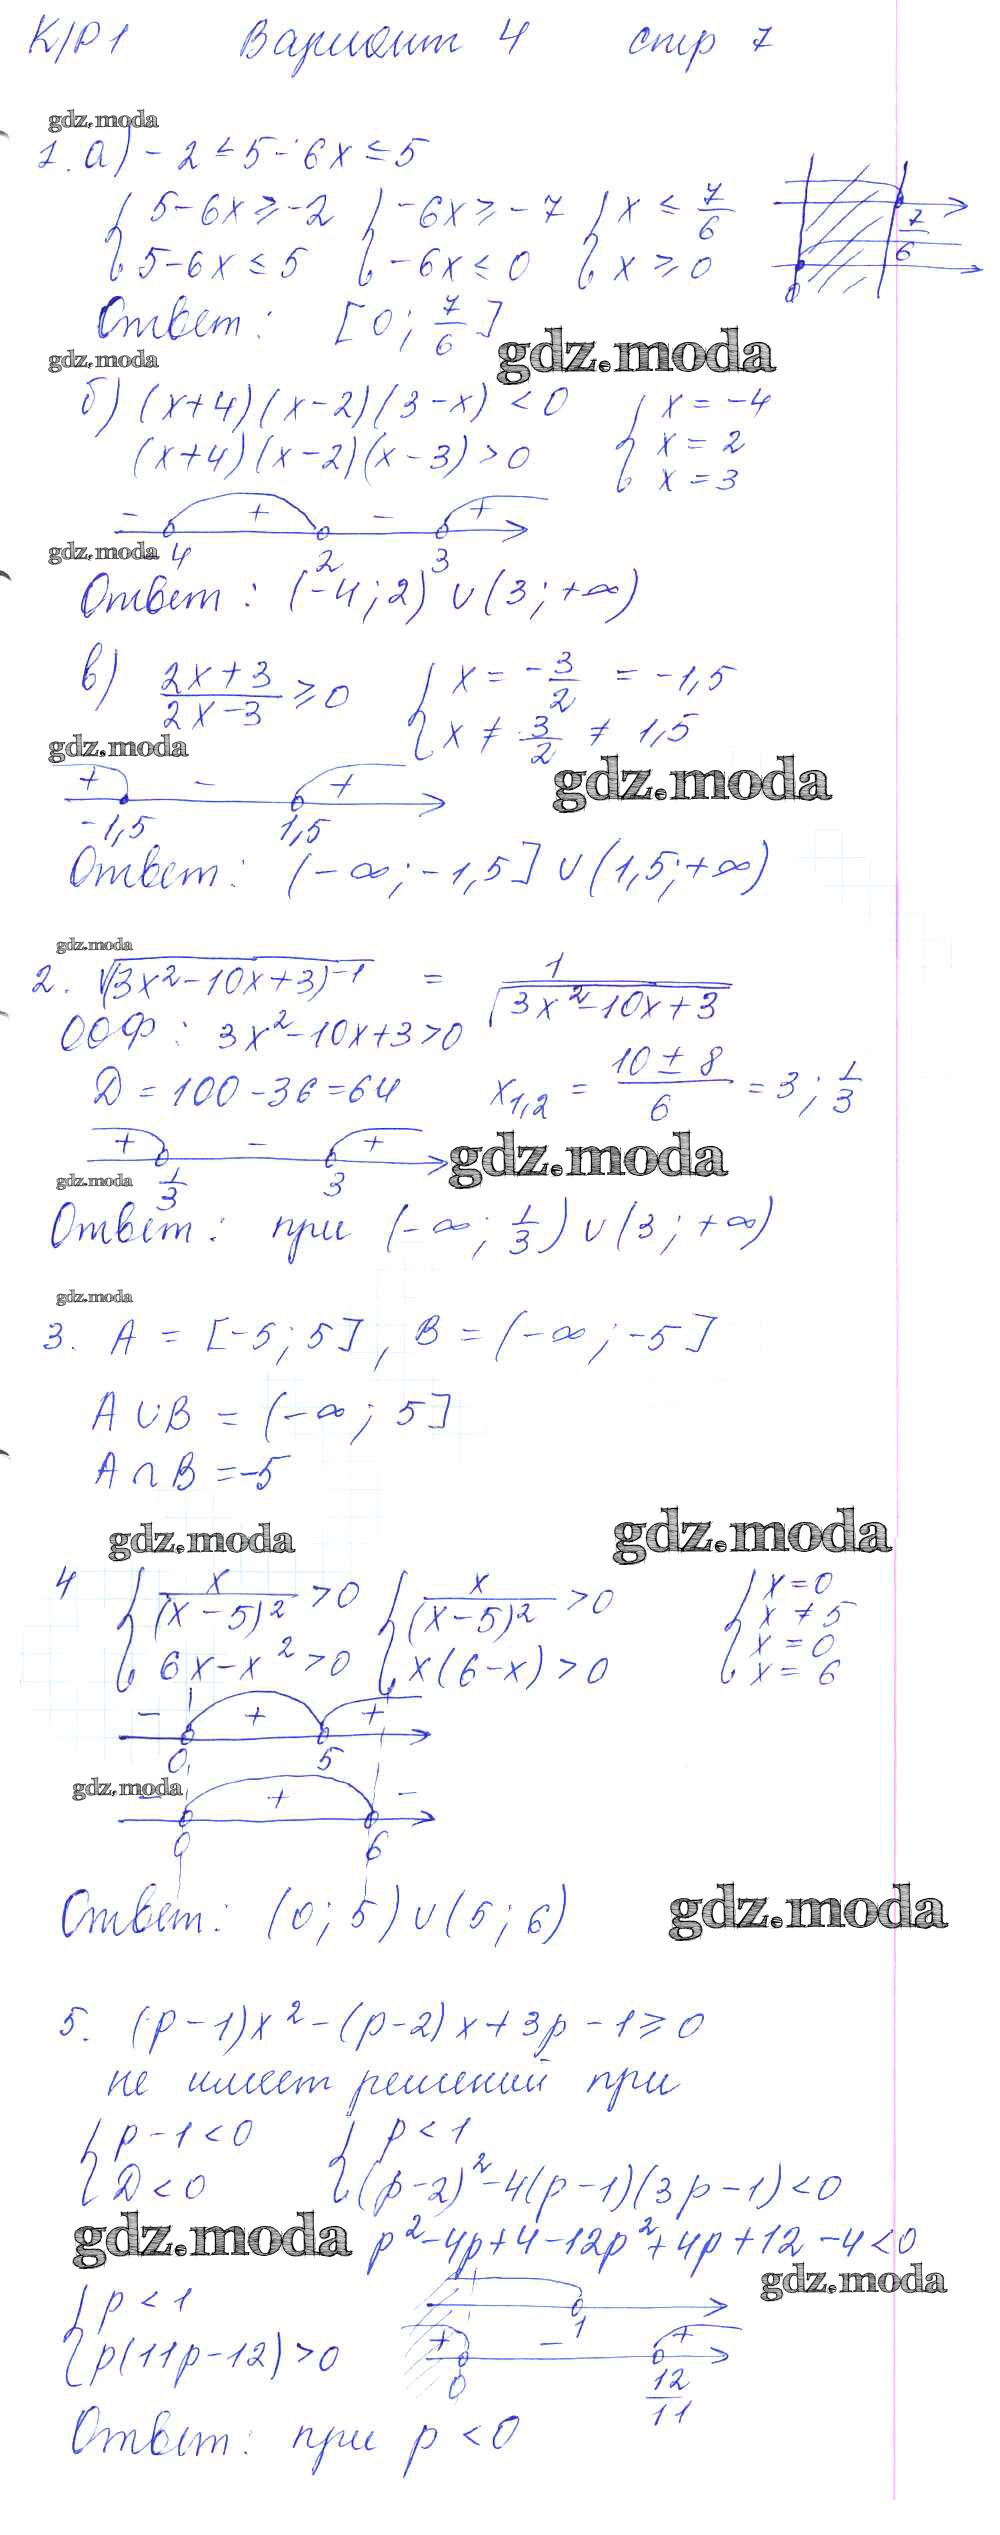 К/Р 1 Вариант 4 стр 7
gdz.moda
1. а) -2 ≤ 5 - 6x ≤ 5
{ 5-6x ≥ -2 { -6x ≥ -7 { x ≤ 7/6
{ 5-6x ≤ 5 { -6x ≤ 0 { x ≥ 0
7/6
0
Ответ: [0; 7/6]
gdz.moda
gdz.moda
б) (x+4)(x-2)(3-x) < 0 { x = -4
(x+4)(x-2)(x-3) > 0 { x = 2
{ x = 3
- + - +
gdz.moda -4 2 3
Ответ: (-4; 2) ∪ (3; +∞)
в) (2x+3)/(2x-3) ≥ 0 { x = -3/2 = -1,5
{ x ≠ 3/2 ≠ 1,5
gdz.moda
gdz.moda
+ - +
-1,5 1,5
Ответ: (-∞; -1,5] ∪ (1,5; +∞)
gdz.moda
2. √(3x²-10x+3)⁻¹ = 1/√(3x²-10x+3)
ООФ: 3x²-10x+3>0
Д = 100-36=64 x₁,₂ = (10 ± 8)/6 = 3; 1/3
+ - +
gdz.moda
gdz.moda 1/3 3
Ответ: при (-∞; 1/3) ∪ (3; +∞)
gdz.moda
3. A = [-5; 5], B = (-∞; -5]
A ∪ B = (-∞; 5]
A ∩ B = -5
gdz.moda
gdz.moda
4 { x/(x-5)² > 0 { x/(x-5)² > 0 { x=0
{ x ≠ 5
{ 6x-x² > 0 { x(6-x) > 0 { x = 0
{ x = 6
- + +
0 5
gdz.moda
- + -
0 6
Ответ: (0; 5) ∪ (5; 6)
gdz.moda
5. (p-1)x² - (p-2)x + 3p - 1 ≥ 0
не имеет решений при
{ p-1<0 { p<1
{ Д<0 { (p-2)²-4(p-1)(3p-1)<0
gdz.moda p²-4p+4-12p²+4p+12-4<0
gdz.moda
{ p<1
1
{ p(11p-12)>0
+ - +
0 12/11
Ответ: при p<0